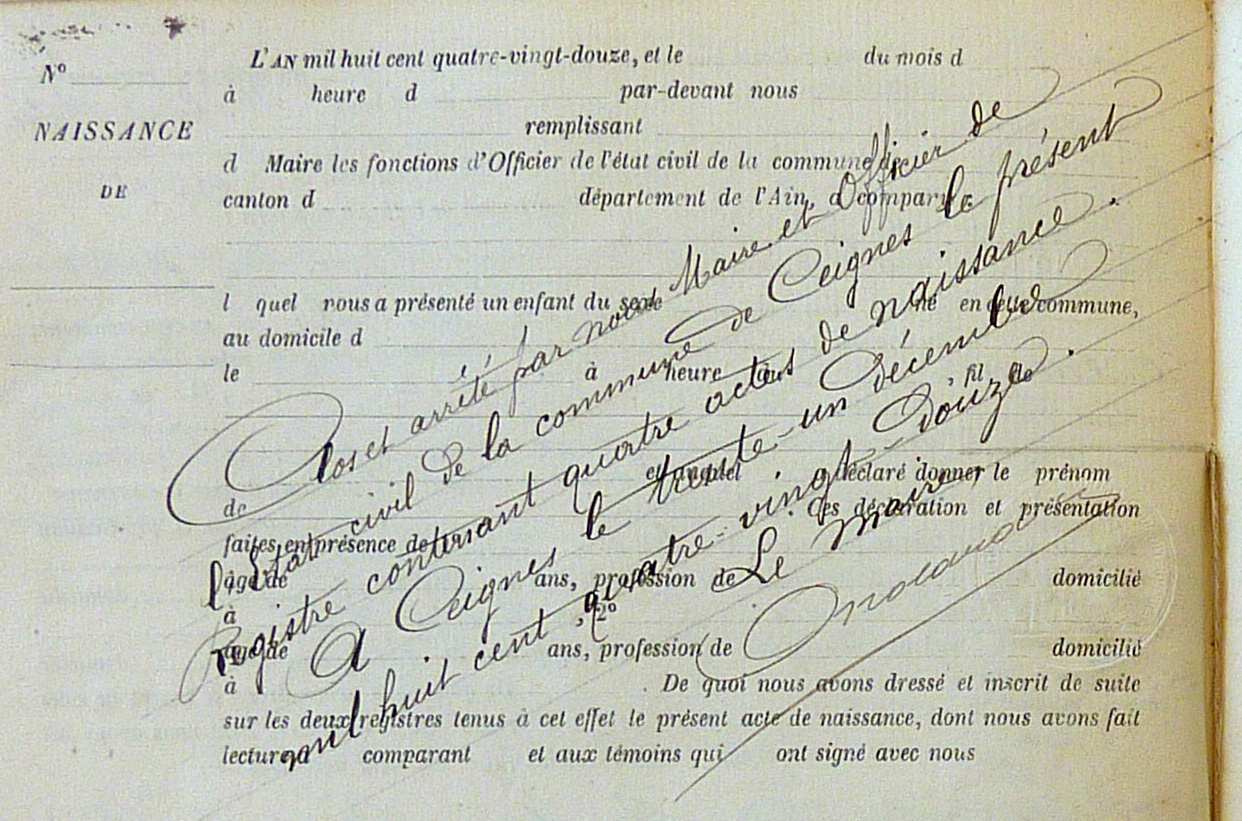 L'AN mil huit cent quatre-vingt-douze, et le du mois d
N°
à heure d par-devant nous
NAISSANCE
remplissant
d Maire les fonctions d'Officier de l'état civil de la commune de
DE
canton d département de l'Ain, a comparu
l quel nous a présenté un enfant du sexe né en cette commune,
au domicile d
le à heure du
, fil de
et auquel a déclaré donner le prénom
de . Ces déclaration et présentation
faites en présence de 1°
âgé de ans, profession de domicilié
à , 2°
âgé de ans, profession de domicilié
à . De quoi nous avons dressé et inscrit de suite
sur les deux registres tenus à cet effet le présent acte de naissance, dont nous avons fait
lecture a comparant et aux témoins qui ont signé avec nous
Clos et arrêté par nous Maire et Officier de
l'Etat civil de la commune de Ceignes le présent
Registre contenant quatre actes de naissance.
A Ceignes le trente-un décembre
mil huit cent quatre-vingt-douze.
Le maire,